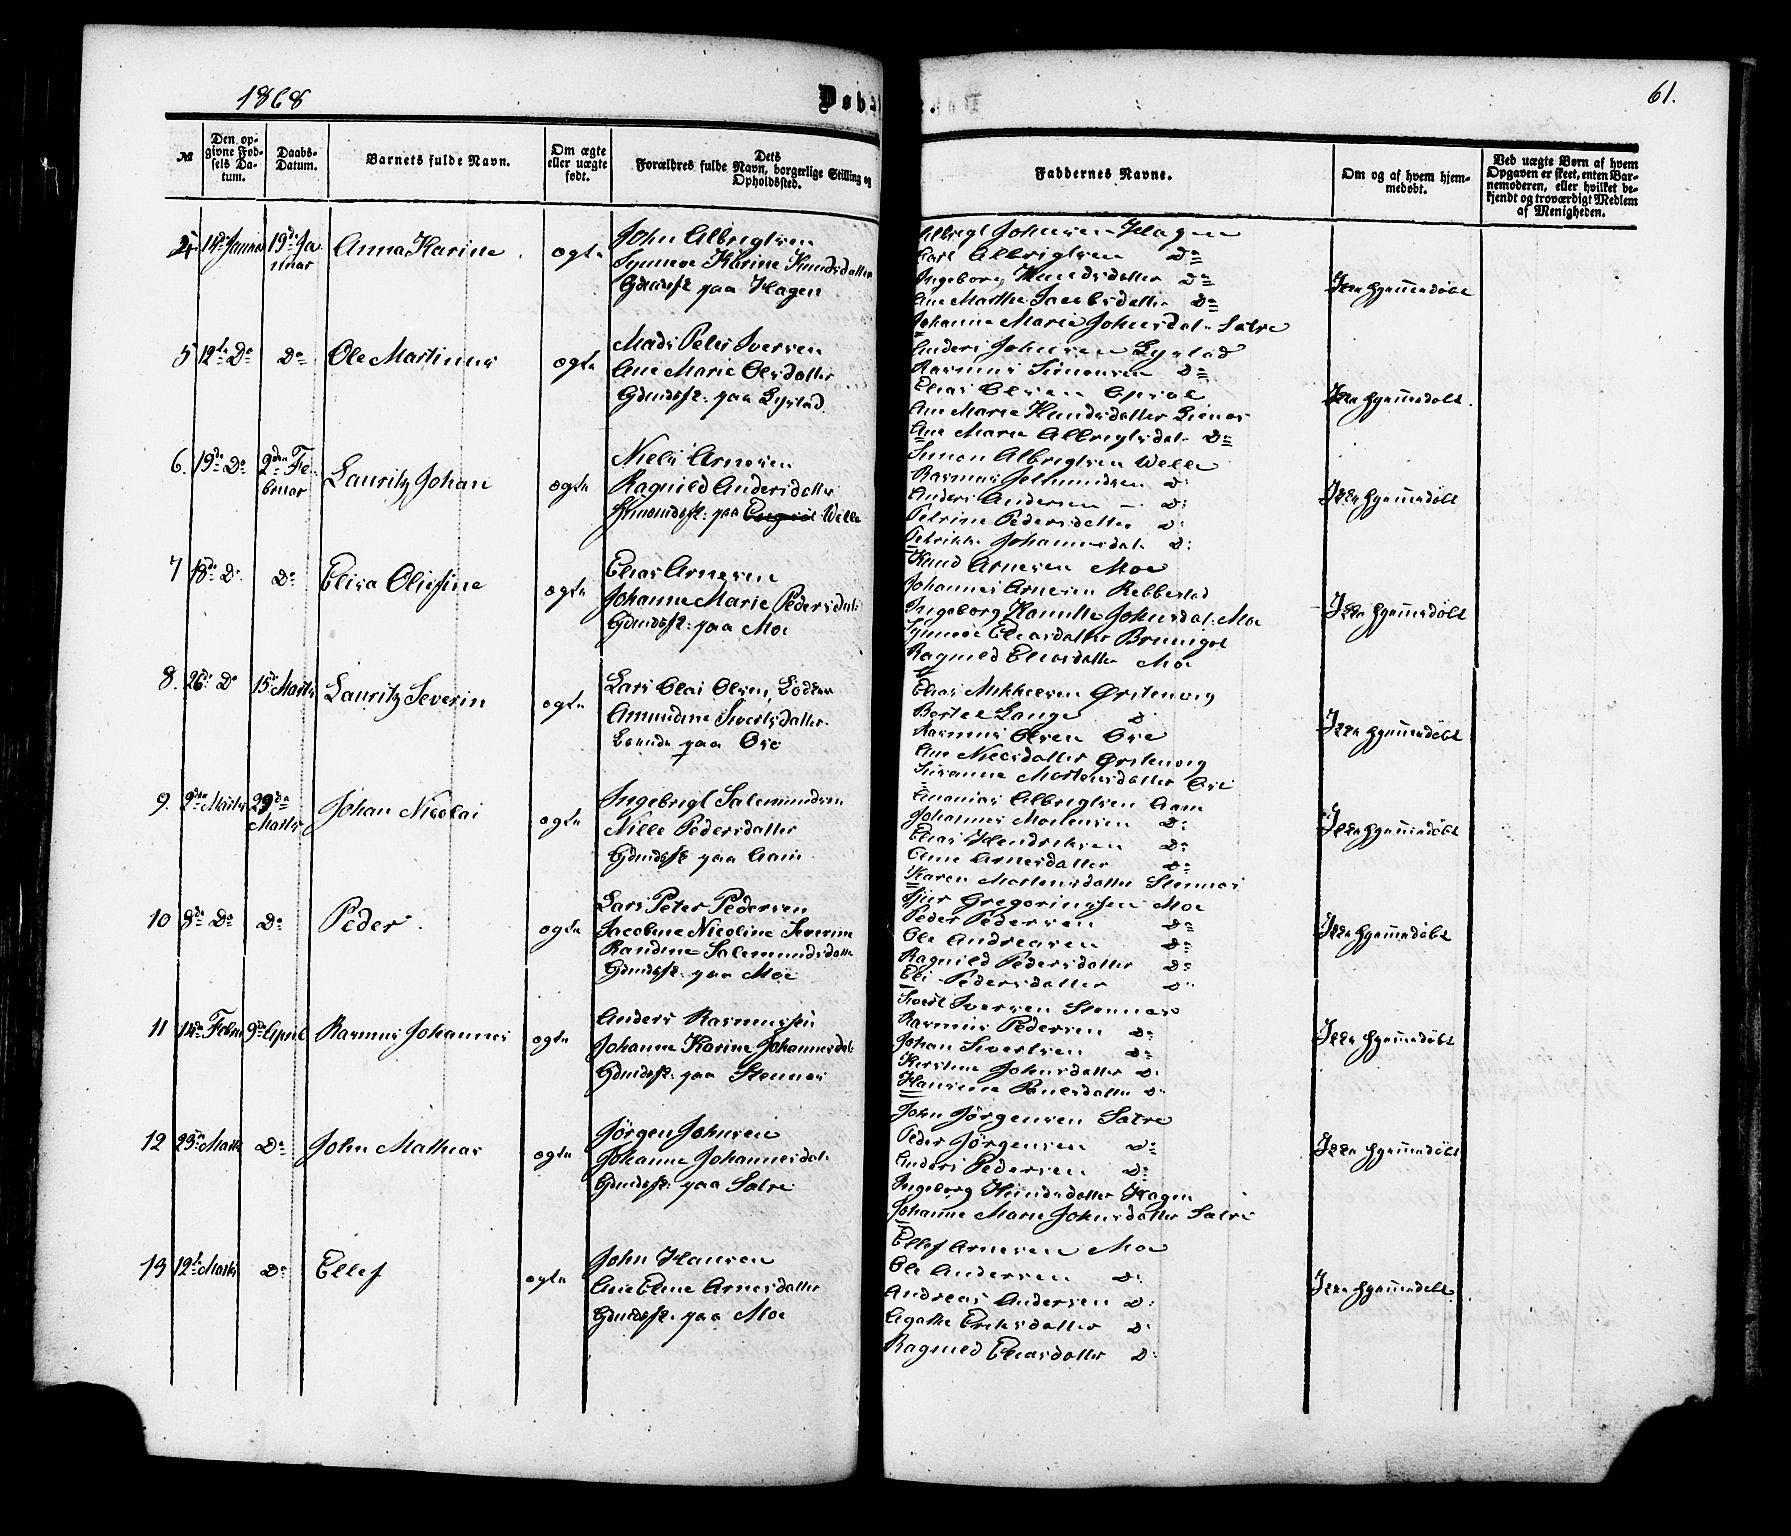 1868
Døbte
61.
№
Den opgivne Fødsels Datum.
Daabs-Datum.
Barnets fulde Navn.
Om ægte eller uægte født.
Dets Forældres fulde Navn, borgerlige Stilling og Opholdssted.
Faddernes Navne.
Om og af hvem hjemmedøbt.
Ved uægte Børn af hvem Opgaven er skeet, enten Barnemoderen, eller hvilket bekjendt og troværdigt Medlem af Menigheden.
4 19de Januar
Anna Karine
ægte
John Albrigtsen
Synnøe Karine Knudsdatter
Gdmdsf. paa Hagen
Albrigt Johnsen Hagen
Carl Albrigtsen Do
Ingeborg Knudsdatter Do
Ane Marthe Jacobsdatter Do
Johanne Marie Johnsdat. Sætre
Ikke hjemmedøbt
5 12te Do Do
Ole Martinus
ægte
Mads Peter Iversen
Ane Marie Olsdatter
Gdmdsf. paa Lystad
Anders Johnsen Lystad
Rasmus Simonsen Do
Elias Olsen
Ane Marie Knudsdatter
Ane Marie Albrigtsdat. Do
Ikke hjemmedøbt.
6. 19de Do 2den Februar
Lauritz Johan
ægte
Niels Arnesen
Ragnild Andersdatter
paa Welle
Simon Albrigtsen Welle
Rasmus Do
Anders Andersen - Do
Petrine Pedersdatter Do
Petrikke Johannesdat. Do
Ikke hjemmedøbt
7 18de Do Do
Elisa Oliefine
ægte
Elias Arnesen
Johanne Marie Pedersdat.
Gdmdsf. paa Moe
Knud Arnesen Moe
Johannes Arnesen Rebbestad
Ingeborg Johnsdat. Moe
Synnøe Eliasdatter
Ragnild Eliasdatter Moe
Ikke hjemmedøbt
8. 26de Do 15de Marts
Lauritz Severin
ægte
Lars Olai Olsen,
Amundine Sivertsdatter
paa Ose
Elias Mikkelsen Ørstenvig
Bertel Lange Do
Rasmus Olsen Ose
Ane Nielsdatter Ørstenvig
Susanne Mortensdatter Ose
Ikke hjemmedøbt
9. 2den Marts 29de Marts
Johan Nicolai
ægte
Ingebrigt Salamundsen
Nille Pedersdatter
Gdmdsf. paa Aam
Ananias Albrigtsen Aam
Johannes Mortensen Do
Elias Hendriksen Do
Ane Arnesdatter Do
Karen Mortensdatter Stennes
Ikke hjemmedøbt
10 8de Do Do
Peder.
ægte
Lars Peter Pedersen
Jacobine Nicoline Severine
Randine Salamundsdatter
Gdmdsf. paa Moe
Gregoriussen Moe
Peder Pedersen Do
Ole Andreasen Do
Ragnild Pedersdatter Do
Eli Pedersdatter Do
Ikke hjemmedøbt
11 Febr 9de April
Rasmus Johannes
ægte
Anders Rasmussen
Johanne Karine Johannesdat.
Gdmdsf. paa Stennes
Sivert Iversen Stennes
Rasmus Pedersen Do
Johan Sivertsen Do
Kirstine Johnsdatter Do
Hansine Poulsdatter Do
Ikke hjemmedøbt
12 25de Marts Do
John Mathias
ægte
Jørgen Johnsen
Johanne Johannesdat.
Gdmdsf. paa Sætre
John Jørgensen Sætre
Peder Jørgensen Do
Anders Pedersen Do
Ingeborg Knudsdatter Hagen
Johanne Marie Johnsdatter Sætre
Ikke hjemmedøbt
13 12te Marts Do
Ellef
ægte
John Hansen
Ane Eline Arnesdatter
Gdmdsf. paa Moe
Ellef Arnesen Moe
Ole Andersen Do
Andreas Andersen Do
Agathe Eriksdatter Do
Ragnild Eliasdatter Do
Ikke hjemmedøbt.